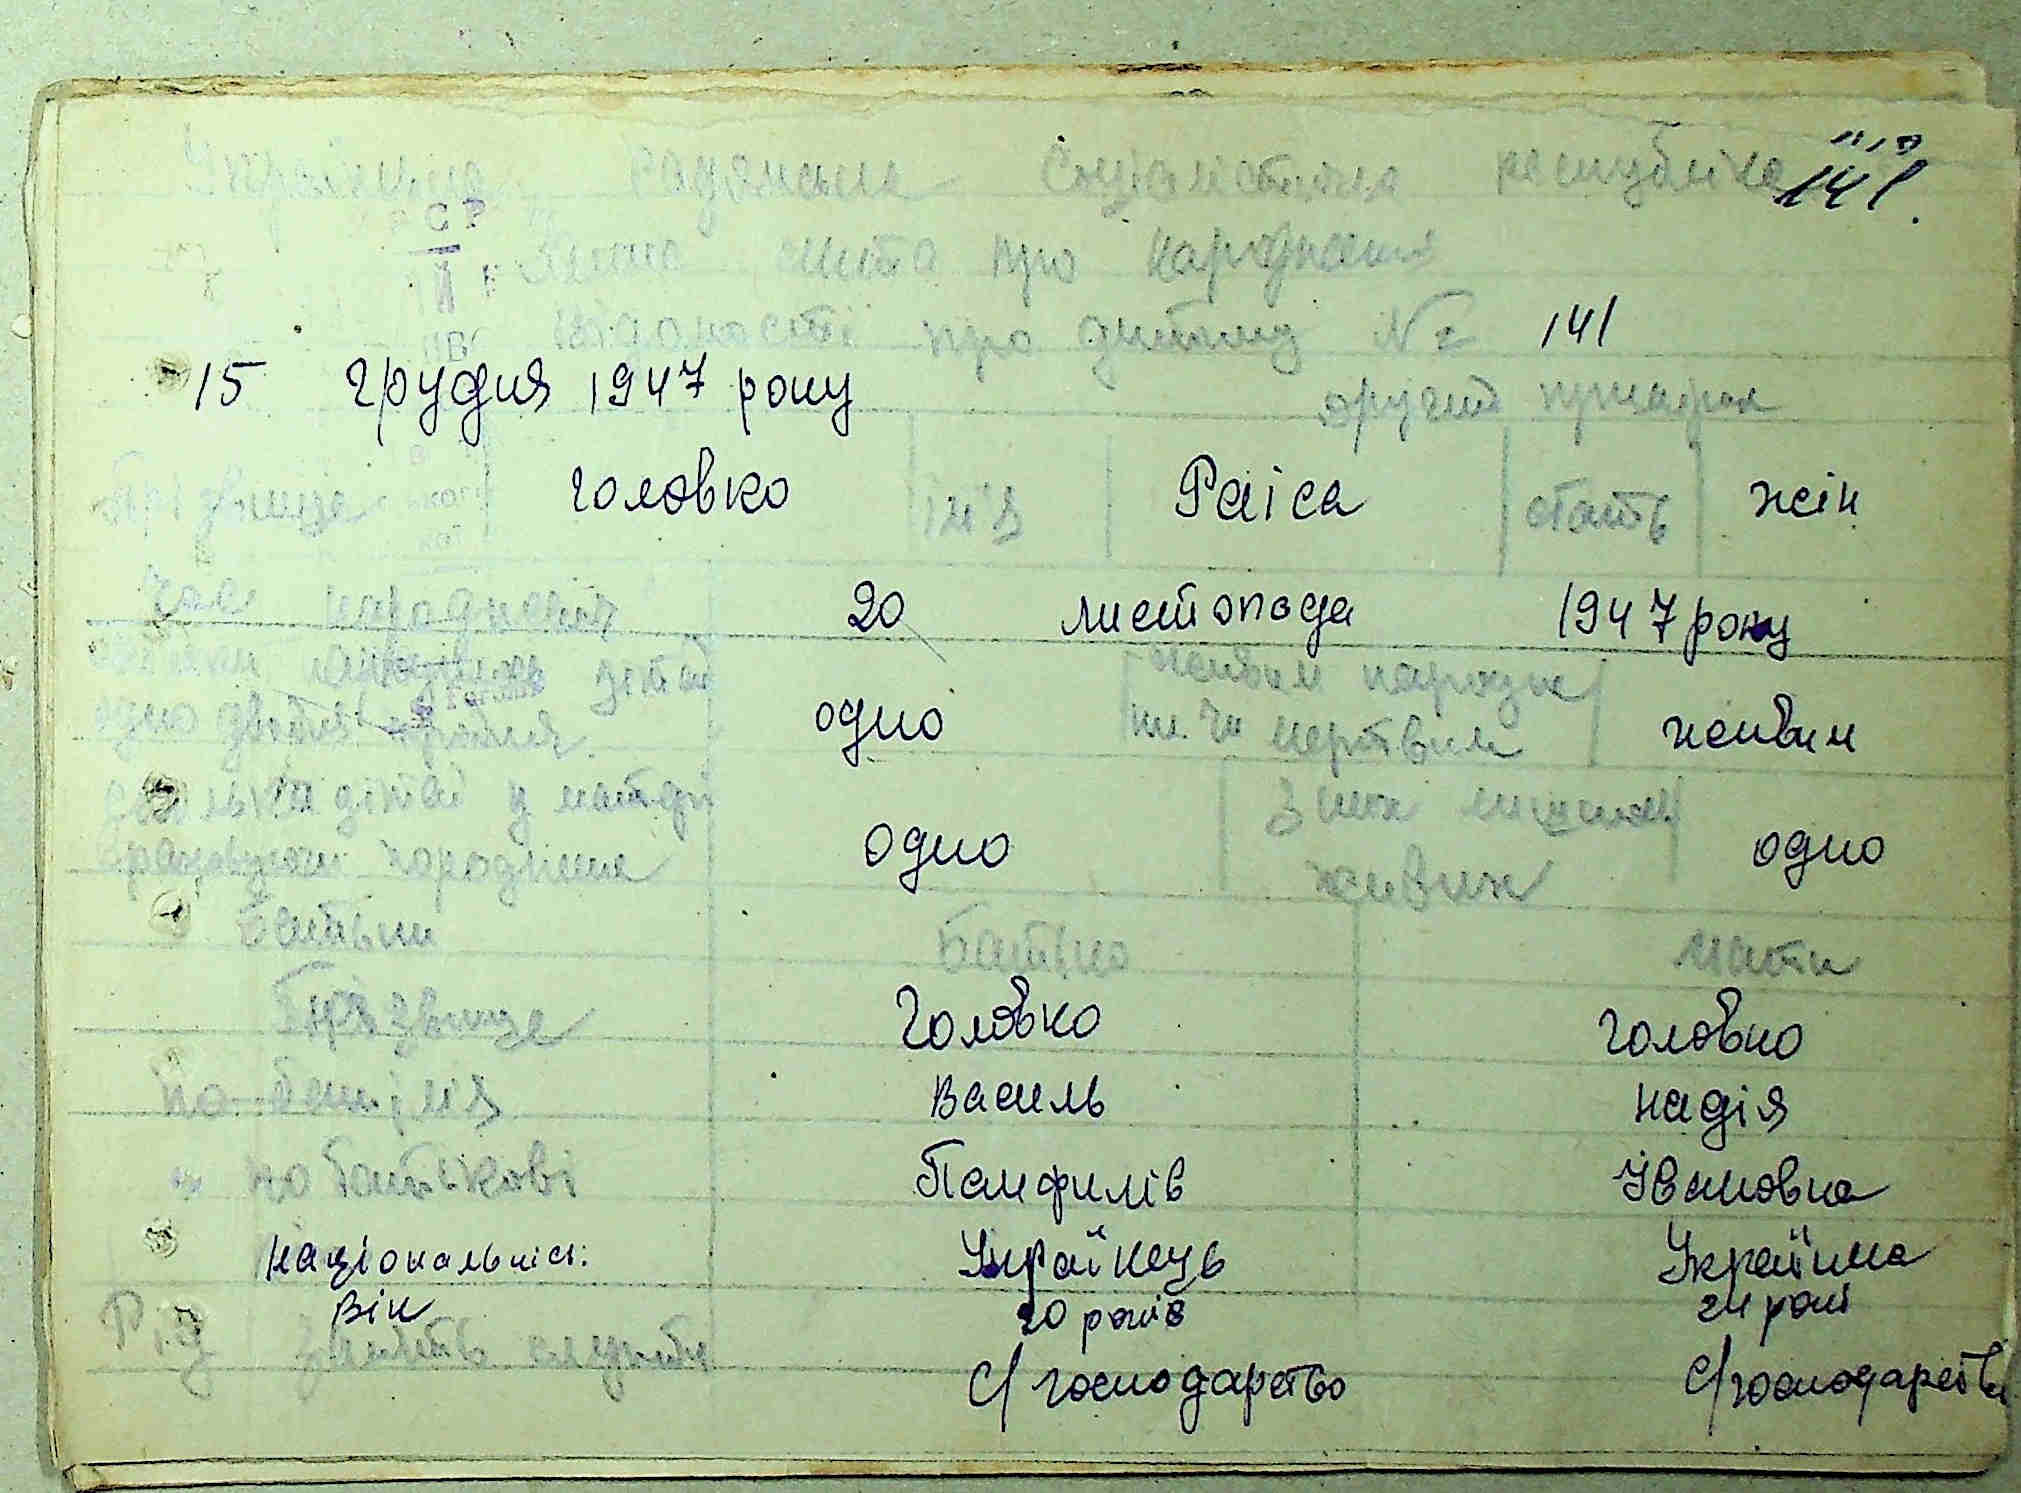 Українська радянська соціалістична республіка 141
Книга запису про народження
Відомості про дитину № 141
15 грудня 1947 року другий примірник
Прізвище головко ім'я Раіса стать жін
Час народження 20 листопада 1947 року
народилось дітей одно живим народж
одно двійня тройня чи мертвим живим
дітей у матері одно З них лишилось одно
враховуючи народження живих
Батьки Батько Мати
Прізвище Головко головко
ім'я Василь надія
по батькові Панфилів Івановна
національніст: Українець Українка
вік 20 років 24 рокі
Рід занять с/господарство с/господарство